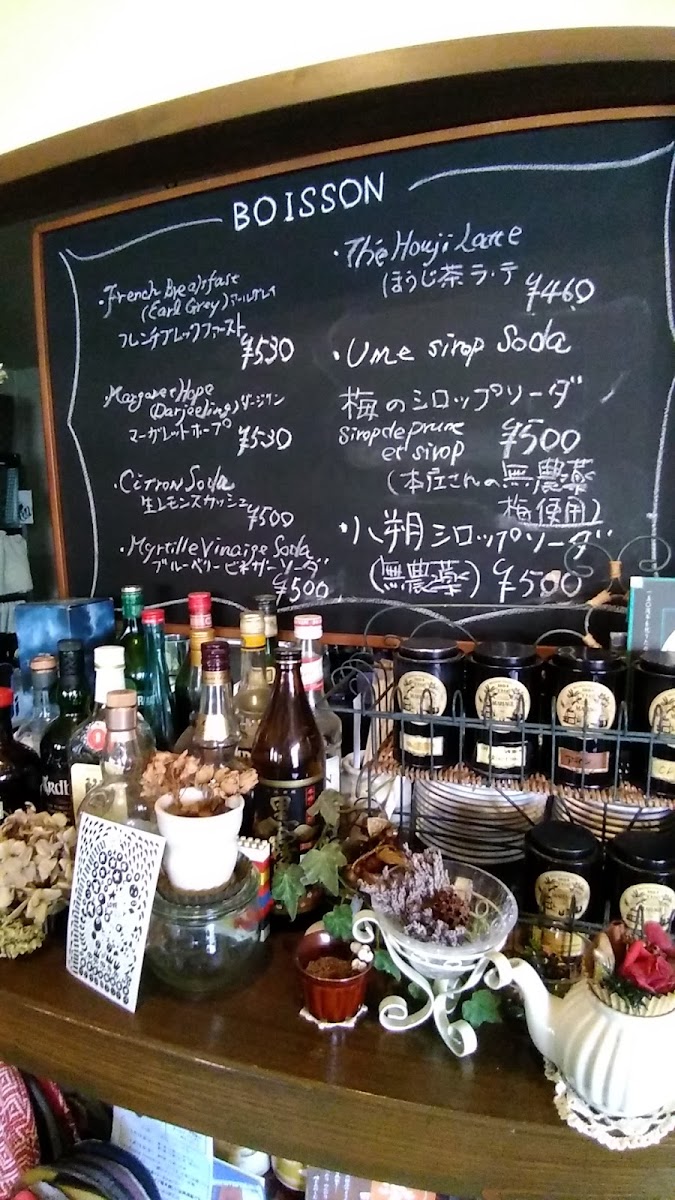 BOISSON
・French Breakfast
(Earl Grey) アールグレイ
フレンチブレックファースト
¥530
・Margaret Hope
(Darjeeling) ダージリン
マーガレットホープ
¥530
・Citron Soda
生レモンスカッシュ
¥500
・Myrtille Vinaige Soda
ブルーベリービネガーソーダ
¥500
・Thé Houji Latte
(ほうじ茶ラ・テ
¥460
・Ume sirop Soda
梅のシロップソーダ
sirop de prune
et sirop
¥500
(本庄さんの無農薬
梅使用)
・八朔シロップソーダ
(無農薬) ¥500